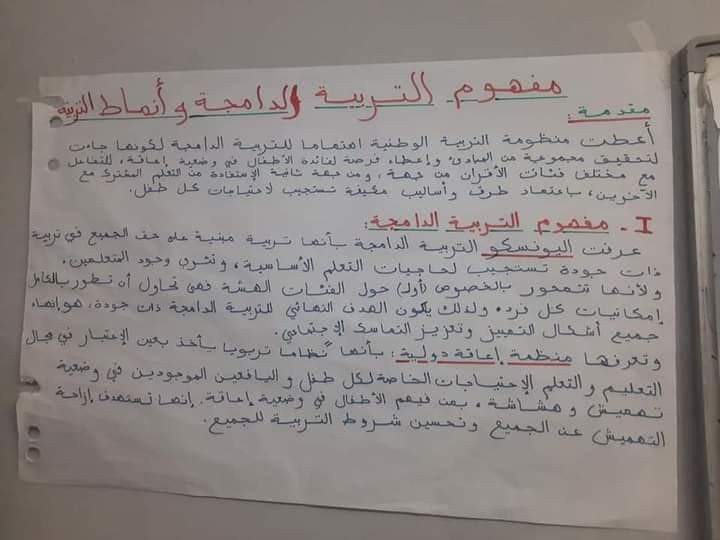 مفهوم التربية الدامجة وأنماط التربية
مقدمة:
أعطت منظومة التربية الوطنية اهتماما للتربية الدامجة لكونها جاءت
لتحقيق مجموعة من المبادئ، وإعطاء فرصة لفائدة الأطفال في وضعية إعاقة، للتفاعل
مع مختلف فئات الأقران من جهة، ومن جهة ثانية الإستفادة من التعلم المشترك مع
الآخرين، باعتماد طرق وأساليب مكيفة تستجيب لاحتياجات كل طفل.
I - مفهوم التربية الدامجة:
عرفت اليونسكو التربية الدامجة بأنها تربية مبنية على حق الجميع في تربية
ذات جودة تستجيب لحاجيات التعلم الأساسية، وتثري وجود المتعلمين.
ولأنها تتمحور بالخصوص (أولا) حول الفئات الهشة فهي تحاول أن تطور بالكامل
إمكانيات كل فرد، ولذلك يكون الهدف النهائي للتربية الدامجة ذات جودة، هو إنهاء
جميع أشكال التمييز وتعزيز التماسك الإجتماعي.
وتعرفها منظمة إعاقة دولية: بأنها نظاما تربويا يأخذ بعين الإعتبار في مجال
التعليم والتعلم الإحتياجات الخاصة لكل طفل واليافعين الموجودين في وضعية
تهميش وهشاشة، بمن فيهم الأطفال في وضعية إعاقة. إنها تستهدف إزاحة
التهميش عن الجميع وتحسين شروط التربية للجميع.